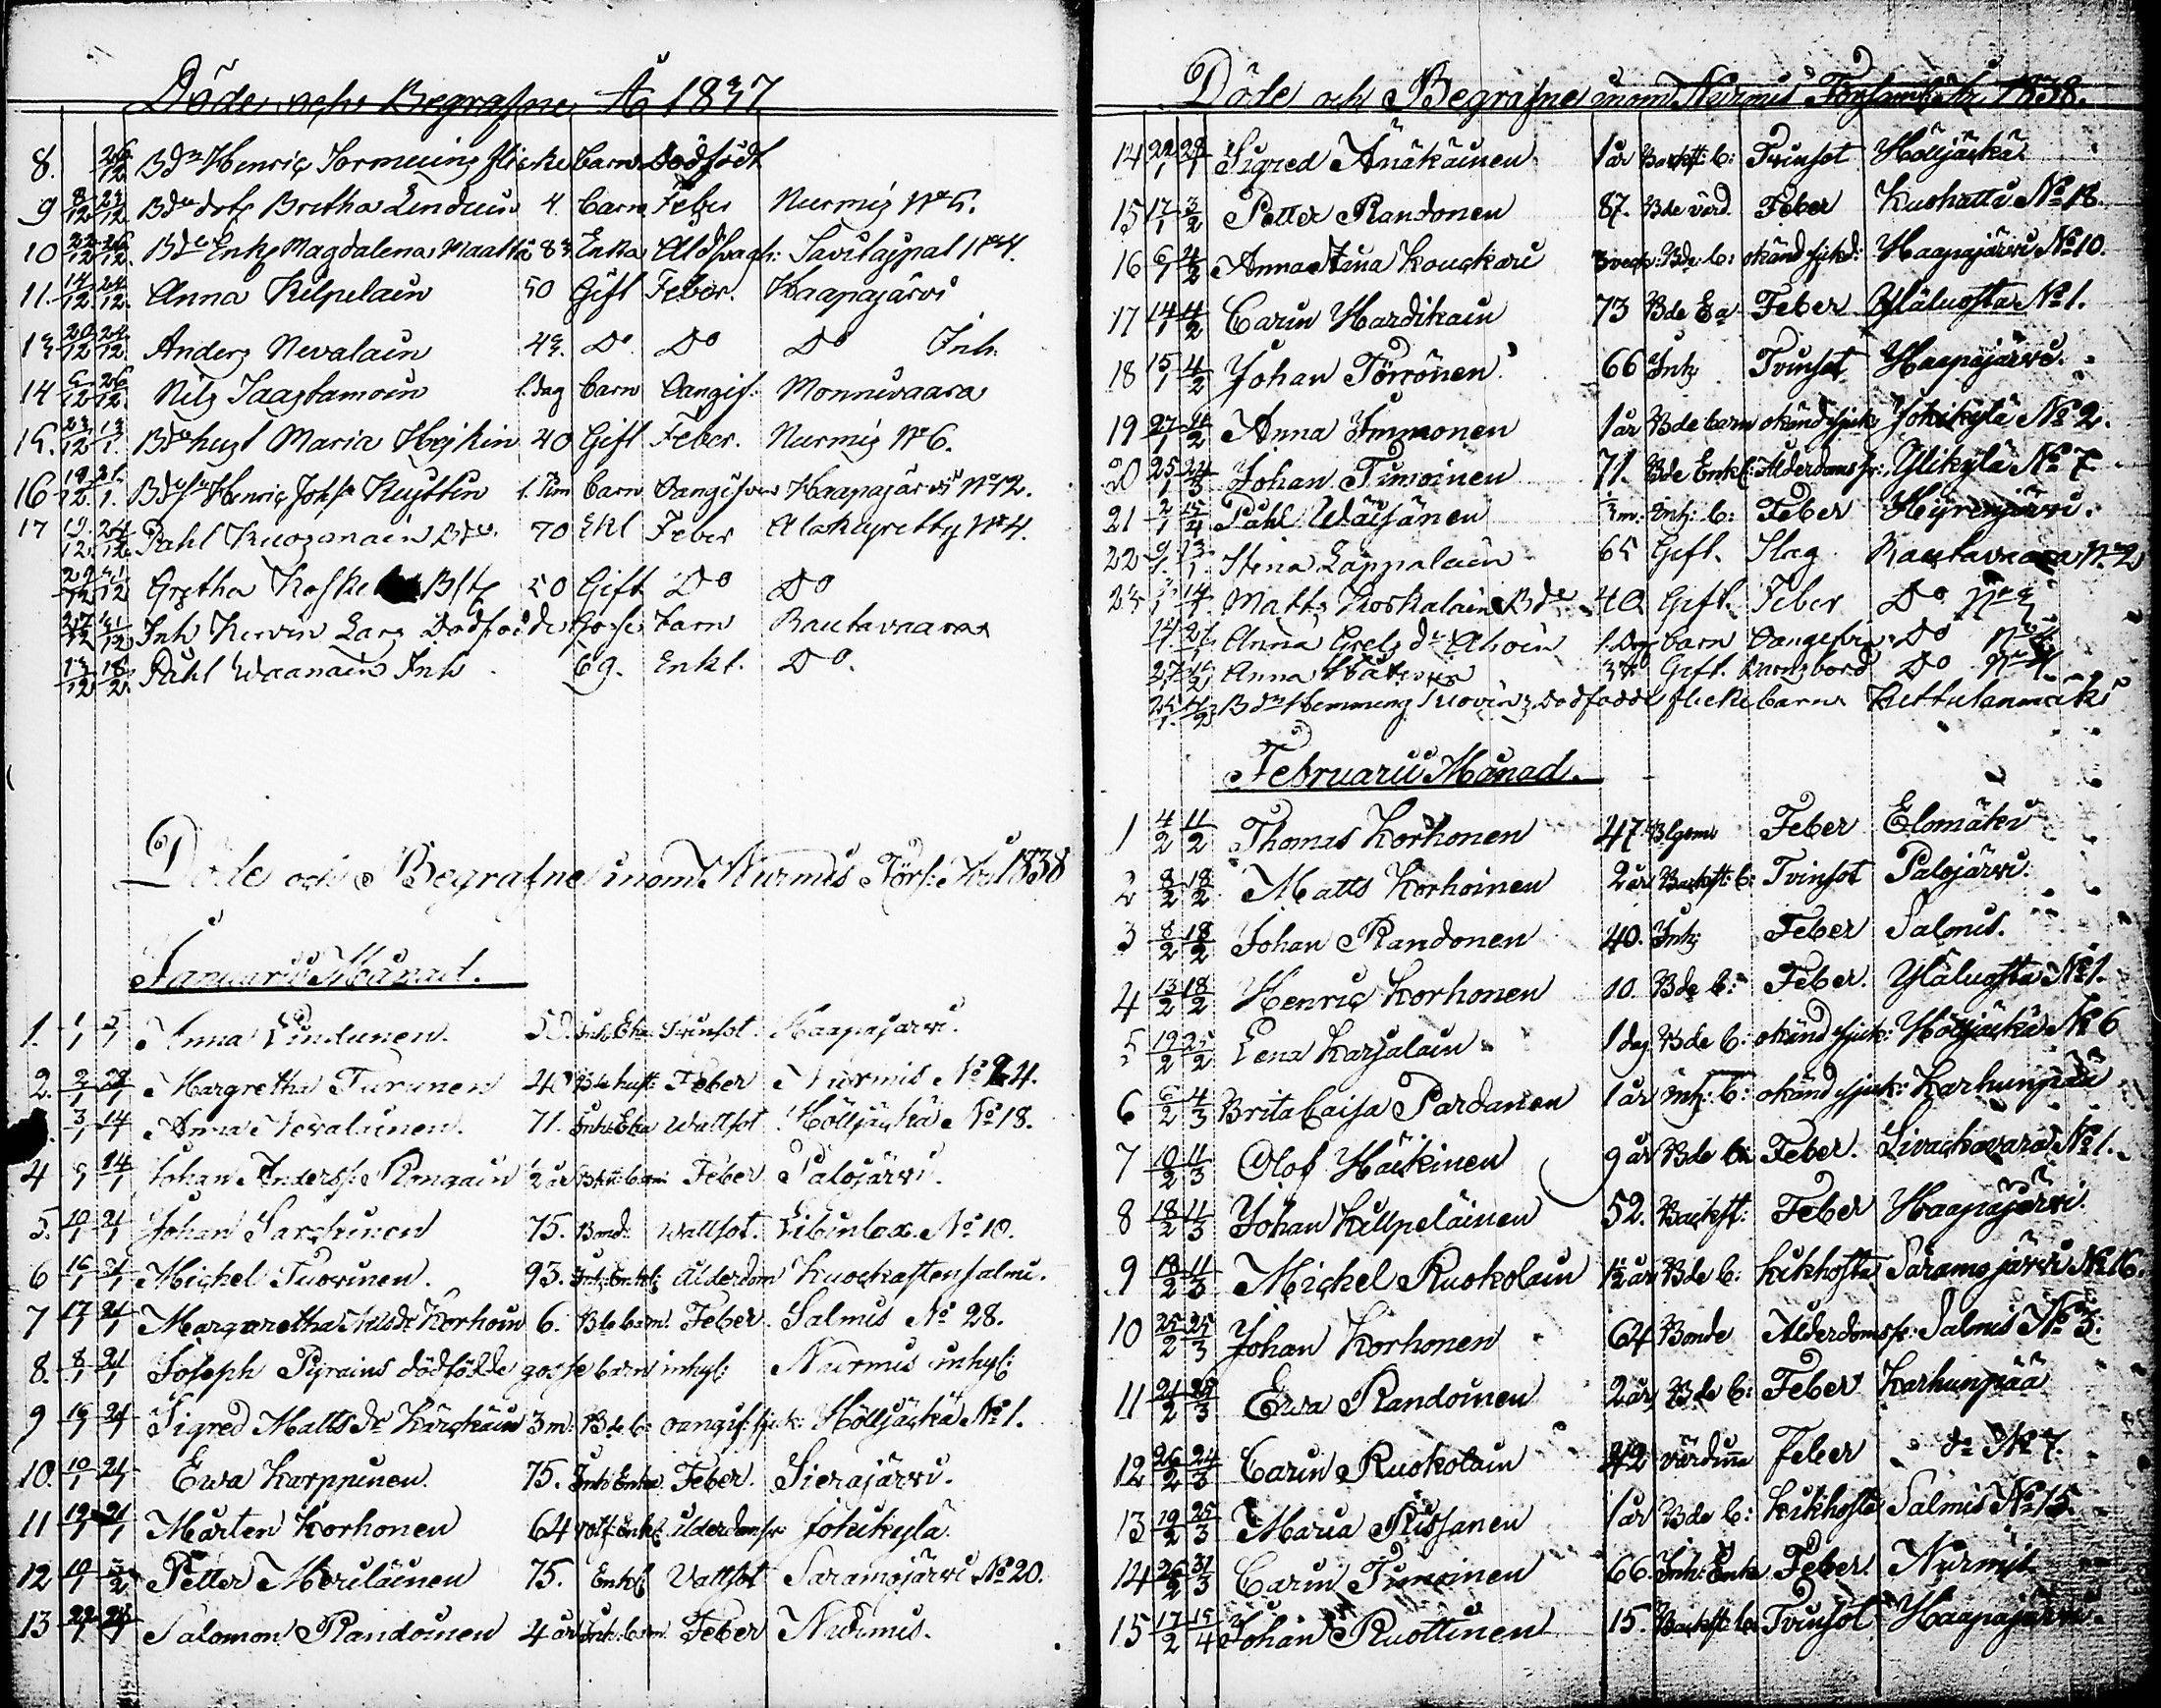 Döde och Begrafne År 1837
8. 26/12 Bdn Henric Tormuinz flicke barn dödfödt
9 8/12 23/12 Bde dotr Bretha Linduin 4. barn Feber Nurmis No 5.
10 22/12 26/12 Bde Enkf Magdalena 83 Enka Aldsvagh:
11. 14/12 24/12 Anna Kilpelain 50 Gift Feber. Haapajärvi
13 20/12 24/12 Anders Nevalain 43. Do Do Do Inh.
14 5/12 26/12 Nils Saastamoin 1. dag barn Oangif: Monnivaara
15. 23/12 13/1. Bde hust Maria 40 Gift Feber. Nurmis No 6.
16 19/12 21/1. Henric barn Oangifven Haapajärvi No 12.
17 19/12 24/12 Pahl Kuosmanain Bde 70 Ekl Feber No 4.
Gretha 50 Gift Do Do
Inh Lars Dödföde Gosse barn Rautavaara
13/12 18/2 Påhl Waanain Inh 69. Enkl. Do.
Döde och Begrafne inom Nurmis Förs: År 1838
Januarii Månad.
1. Anna Lindunen. 50. Inh: Eka Tvinsot. Haapajärvi.
2. 2/1 28/1 Margretha Turunen 40 Bde hust: Feber Nurmis No 24.
3/1 14/1 Anna Nevalainen. 71. Inh: Eka Wattsot Höljäckä No 18.
4 14/1 Johan Anderss: Rongain 2 år barn Feber Palojärvi.
5. 10/1 21/1 Johan 75. Bond: Wattsot. No 10.
6 16/1 21/1 Michel Tuovinen. 93. Inh: Enkl: Ålderdom Kuockastensalmi.
7 17/1 21/1 Margaretha Nilsdr Korhoin 6. Bde barn Feber. Salmis No 28.
8. 8/1 21/1 Joseph Pyrains dödfödde gosse barn inhys: Nurmis inhys:
9 16/1 21/1 Sigred Matts dr Kärckäin 3 m: Bde b: oangif: sjuk: Höljäckä No 1.
10. 10/1 21/1 Ewa Karppinen. 75. Inh: Enka Feber. Sierajärvi.
11 19/1 21/1 Mårten Korhonen 64 Enkl ålderdomsv: Jokikylä.
12 19/1 3/2 Petter Meriläinen 75. Enkl Vattsot Saramojärvi No 20.
13 22/1 28/1 Salomon Randoinen 4 år Inh: barn Feber Nurmis.
Döde och Begrafne inom Nurmis Förs: År 1838.
14 22/1 28/1 Sigred Änäkäinen 1 år Backst: b: Tvinsot Höljäckä.
15 17/1 3/2 Petter Randonen 87. Bde värd. Feber Kuohatti No 18.
16 6/1 4/2 Anna Stina Kouckari 3 veck: Bde: b: okänd sjukd: Haapajärvi No 10.
17 14/1 4/2 Carin Hardikain 73 Bde Ea Feber Ylåluosta No 1.
18 15/1 4/2 Johan Törrönen 66 Inh: Tvinsot Haapajärvi.
19 27/1 4/2 Anna Immonen 1 år Bde barn okänd sjuk: Jokikylä No 2.
20 25/1 24/3 Johan Timoinen 71. Bde Enkl: Alderdoms sv: Ylikylä No 7
21 2/1 15/4 Påhl Wäisänen 3 m. Inh: b: Feber Hyrenjärvi.
22 Stina Lappalain 65 Gift. Slag Rautavaara No 2
23 Matts Koskalain Bde 40 Gift. Feber Do No 3
Anna Grels dr Ahoin 1. Dag barn Oangifven Do
Anna Gift. Barnsbörd Do
Bdn Hemming dödfödde flicke barn Kettulanmäki
Februarii Månad.
1 4/2 11/2 Thomas Korhonen 47. Feber Elomäki
2 8/2 18/2 Matts Korhoinen 2 år Backst: b: Tvinsot Palojärvi.
3 8/2 18/2 Johan Randonen 40. Inh: Feber Salmis.
4 13/2 18/2 Henric Korhonen 10. Bde b: Feber. Ylåluosta No 1.
5 19/2 25/2 Lena Karjalain 1 dag Bde b: okänd sjuk: Höljäckä No 6
6 6/2 4/3 Brita Caisa Pardanen 1 år inh: b: okänd sjuk: Karhunpää
7 10/2 11/3 Olof Häckinen 9 år Bde b: Feber. Sivackavara No 1.
8 18/2 11/3 Johan Killpeläinen 52. Backst: Feber Haapajärvi.
9 18/2 11/3 Michel Ruokolain 1 1/2 år Bde b: Kikhosta Saramojärvi No 16.
10 25/2 25/3 Johan Korhonen 64 Bonde Alderdomsv: Salmis No 3.
11 21/2 25/3 Ewa Randoinen 2 år Bde b: Feber Karhunpää
12 26/2 24/3 Carin Ruokolain 42 värdina Feber do No 7.
13 19/2 25/3 Maria Rissanen 1 år Bde b: Kikhosta Salmis No 15.
14 26/2 31/3 Carin Timoinen 66. Inh: Enka Feber. Nurmis
15 17/2 15/4 Johan Ruottinen 15. Backst: b: Tvinsot Haapajärvi.